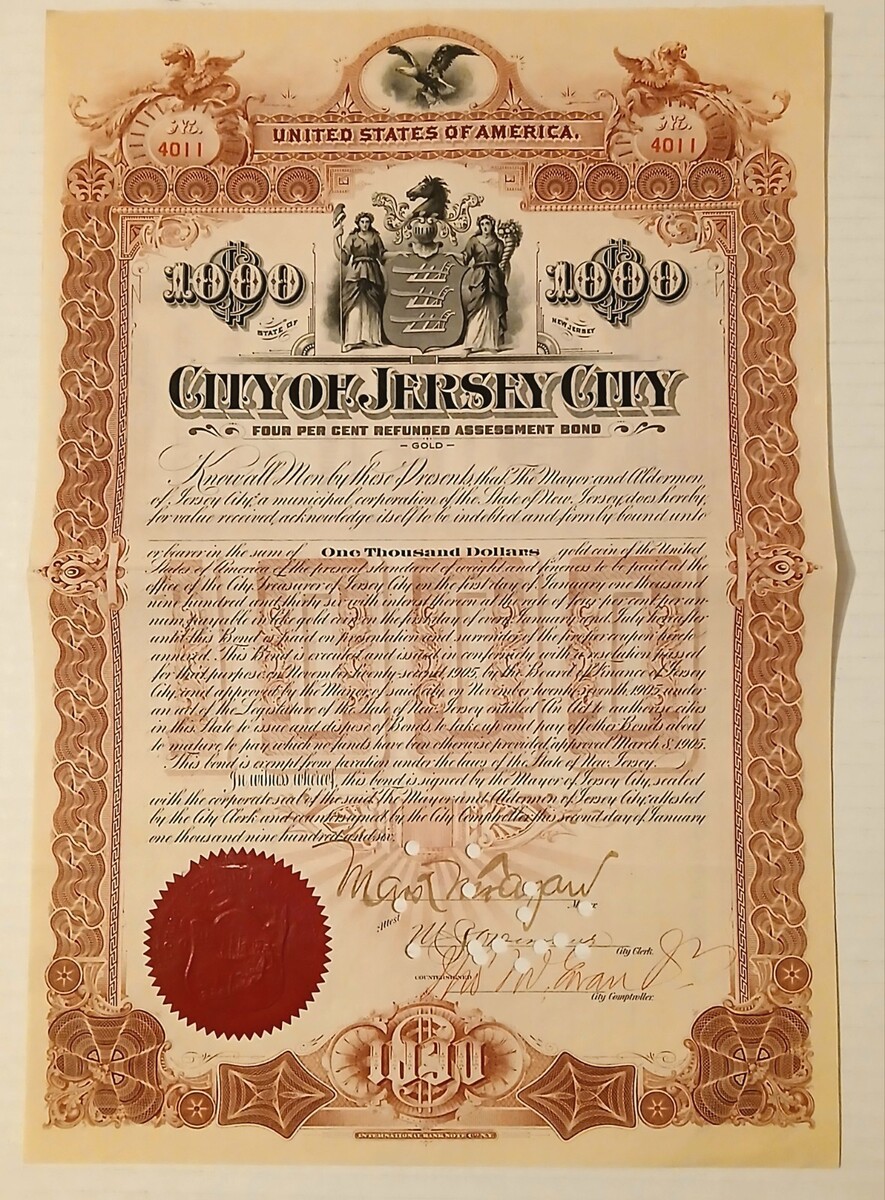 UNITED STATES OF AMERICA.
No. 4011
No. 4011
1000
1000
STATE OF
NEW JERSEY
CITY OF JERSEY CITY
FOUR PER CENT REFUNDED ASSESSMENT BOND
– GOLD –
Know all Men by these Presents, that The Mayor and Aldermen
of Jersey City, a municipal corporation of the State of New Jersey, does hereby,
for value received, acknowledge itself to be indebted and firmly bound unto
or bearer in the sum of One Thousand Dollars gold coin of the United
States of America of the present standard of weight and fineness to be paid at the
office of the City Treasurer of Jersey City on the first day of January one thousand
nine hundred and thirty six with interest thereon at the rate of four per cent per an-
num payable in like gold coin on the first day of every January and July hereafter
until this Bond is paid on presentation and surrender of the proper coupon hereto
annexed. This Bond is executed and issued in conformity with a resolution passed
for that purpose on November twenty-second 1905, by the Board of Finance of Jersey
City and approved by the Mayor of said city on November twenty seventh, 1905, under
an act of the Legislature of the State of New Jersey entitled "An Act to authorize cities
in this State to issue and dispose of Bonds, to take up and pay off other Bonds about
to mature, to pay which no funds have been otherwise provided, approved March 8, 1905.
This bond is exempt from taxation under the laws of the State of New Jersey.
In witness whereof, this bond is signed by the Mayor of Jersey City, sealed
with the corporate seal of the said The Mayor and Aldermen of Jersey City, attested
by the City Clerk and countersigned by the City Comptroller this second day of January
one thousand nine hundred and six.
Mayor.
Attest
City Clerk.
COUNTERSIGNED
City Comptroller.
INTERNATIONAL BANK NOTE CO. N.Y.